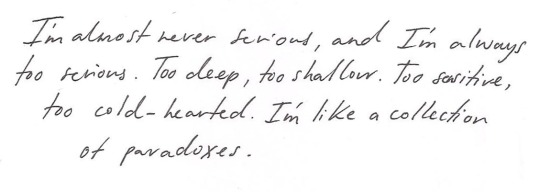 I'm almost never serious, and I'm always
too serious. Too deep, too shallow. Too sensitive,
too cold-hearted. I'm like a collection
of paradoxes.